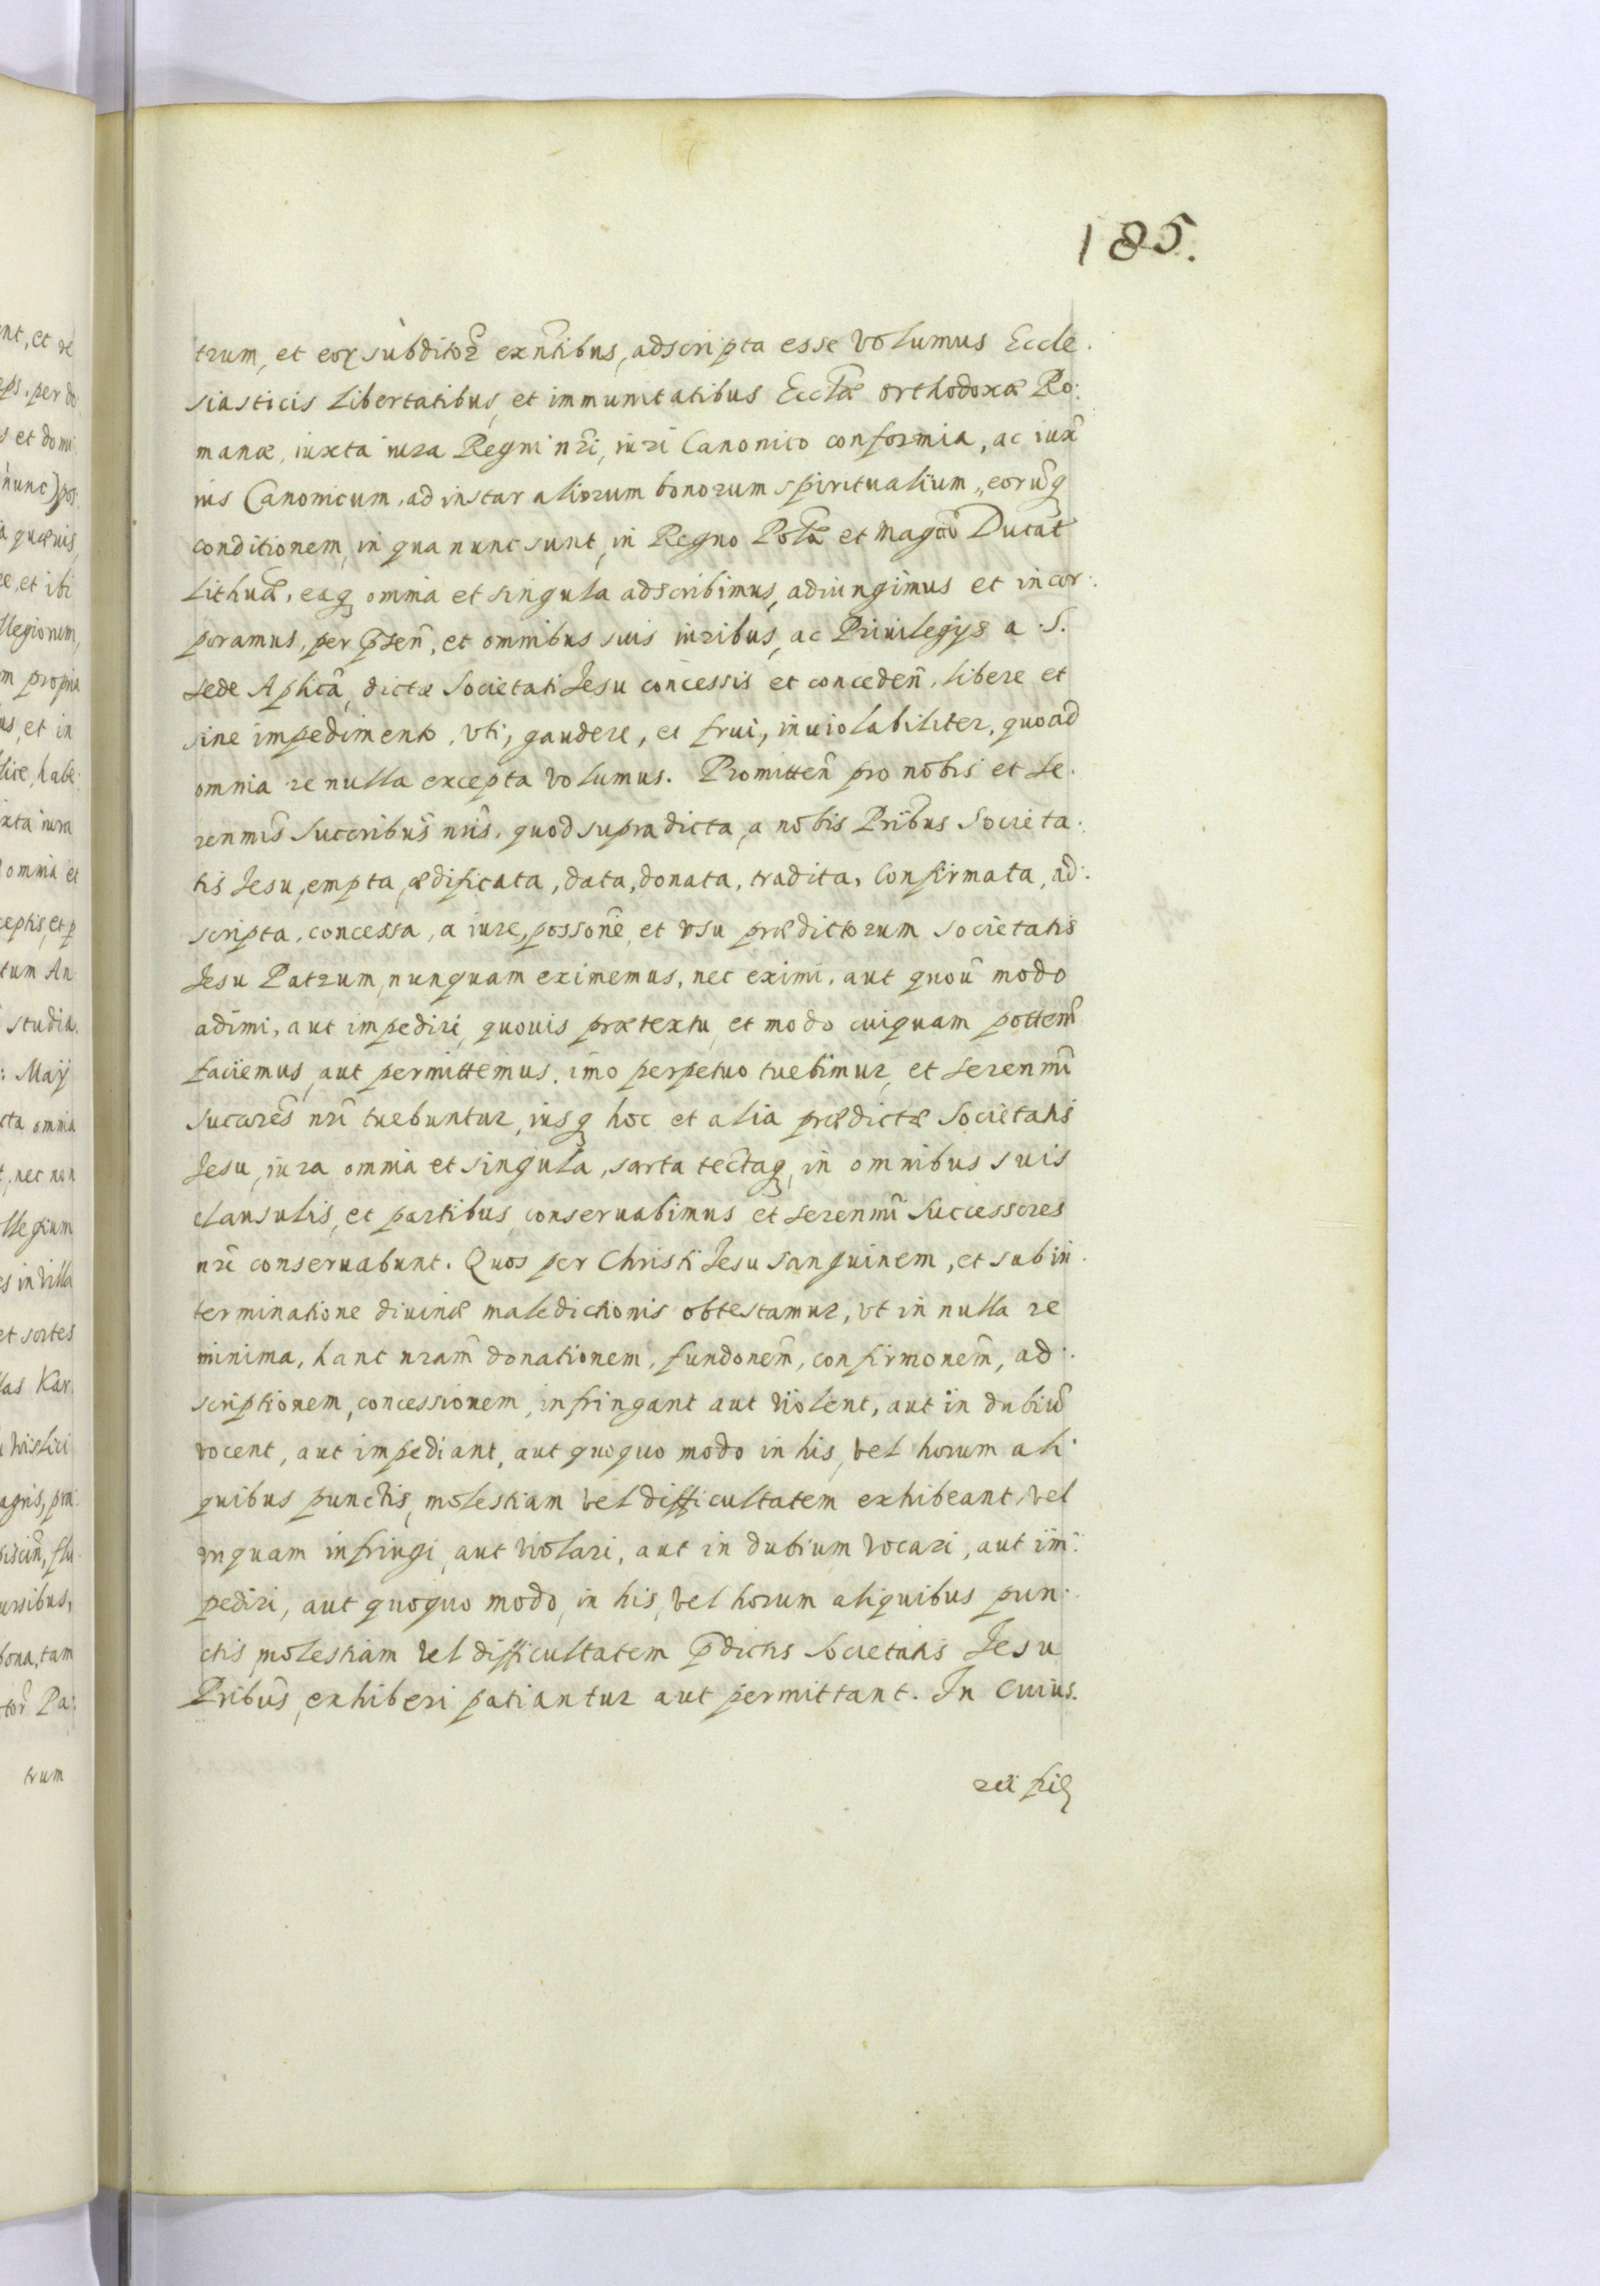 185.
trum, et eorꝝ subditor̃ exñtibus, adscripta esse volumus Eccle.
siasticis libertatibus, et immunitatibus Eccl̃æ orthodoxæ Ro:
manæ, iuxta iura Regni nr̃i, iuri Canonico conformia, ac iux̃
ius Canonicum, ad instar aliorum bonorum spiritualium, eorũq
conditionem, in qua nunc sunt, in Regno Pol̃æ et Magõ Ducat̃
Lithuæ, eaq omnia et singula adscribimus, adiungimus et incor:
poramus, per p̃sen̄, et omnibus suis iuribus, ac Priuilegijs a S.
Sede Aplicã, dictæ Societati Jesu concessis et conceden̄, libere et
sine impedimento, vti, gaudere, et frui, inuiolabiliter, quoad
omnia re nulla excepta volumus. Promitten̄ pro nobis et Se.
renmis̃ Succribus̃ nr̃is, quod supradicta, a nobis Pribus̃ Societa.
tis Jesu, empta, ædificata, data, donata, tradita, Confirmata, ad:
scripta, concessa, a iure, possone, et vsu prædictorum societatis
Jesu Patrum, nunquam eximemus, nec eximi, aut quoũ modo
adimi, aut impediri, quouis prætextu, et modo cuiquam pottem̃
faciemus, aut permittemus, imo perpetuo tuebimur, et Serenmĩ
succores̃ nr̃i tuebuntur, iusq hoc et alia prædictæ Societatis
Jesu, iura omnia et singula, sarta tectaq, in omnibus suis
clausulis, et partibus conseruabimus et Serenmĩ Successores
nr̃i conseruabunt. Quos per Christi Jesu sanguinem, et sub in.
terminatione diuinæ maledictionis obtestamur, vt in nulla re
minima, hanc nram̃ donationem, fundonem̃, confirmonem̃, ad:
scriptionem, concessionem, infringant aut violent, aut in dubiũ
vocent, aut impediant, aut quoquo modo in his, vel horum ali:
quibus punctis, molestiam vel difficultatem exhibeant, vel
vnquam infringi, aut violari, aut in dubium vocari, aut im:
pediri, aut quoquo modo, in his, vel horum aliquibus pun:
ctis molestiam vel difficultatem p̃dictis Societatis Jesu
Pribus̃, exhiberi patiantur aut permittant. In Cuius.
rei fid
trum